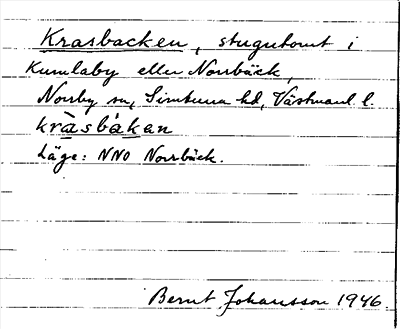 Krasbacken, stugutomt i
Kumlaby eller Norrbäck,
Norrby sn, Simtuna hd, Västmanl. l.
kràsbákan
Läge: NNO Norrbäck.
Bernt Johansson 1946